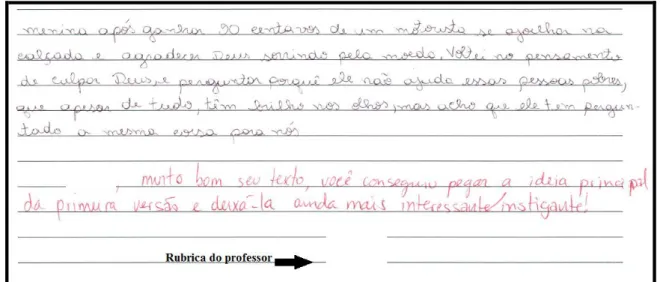 menina após ganhar 90 centavos de um motorista se ajoelhar na
calçada e agradecer Deus sorrindo pela moeda. Voltei no pensamento
de culpar Deus, e perguntar porquê ele não ajuda essas pessoas pobres,
que apesar de tudo, têm brilho nos olhos, mas acho que ele tem pergun-
tado a mesma coisa para nós
, muito bom seu texto, você conseguiu pegar a ideia principal
da primeira versão e deixá-la ainda mais interessante/instigante!
Rubrica do professor